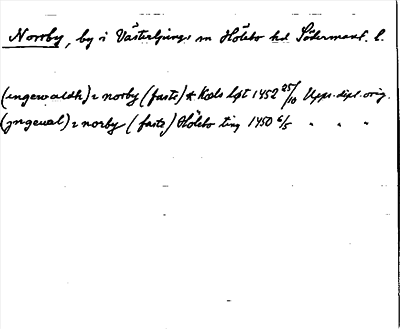 Norrby, by i Västerljungs sn Hölebo hd Södermanl. l.
(ingewaldh) i norby (faste) * Kæls hpt 1452 25/10 Upps. dipl. orig.
(jngewal) i norby (faste) Hölebo ting 1450 6/5 " " "